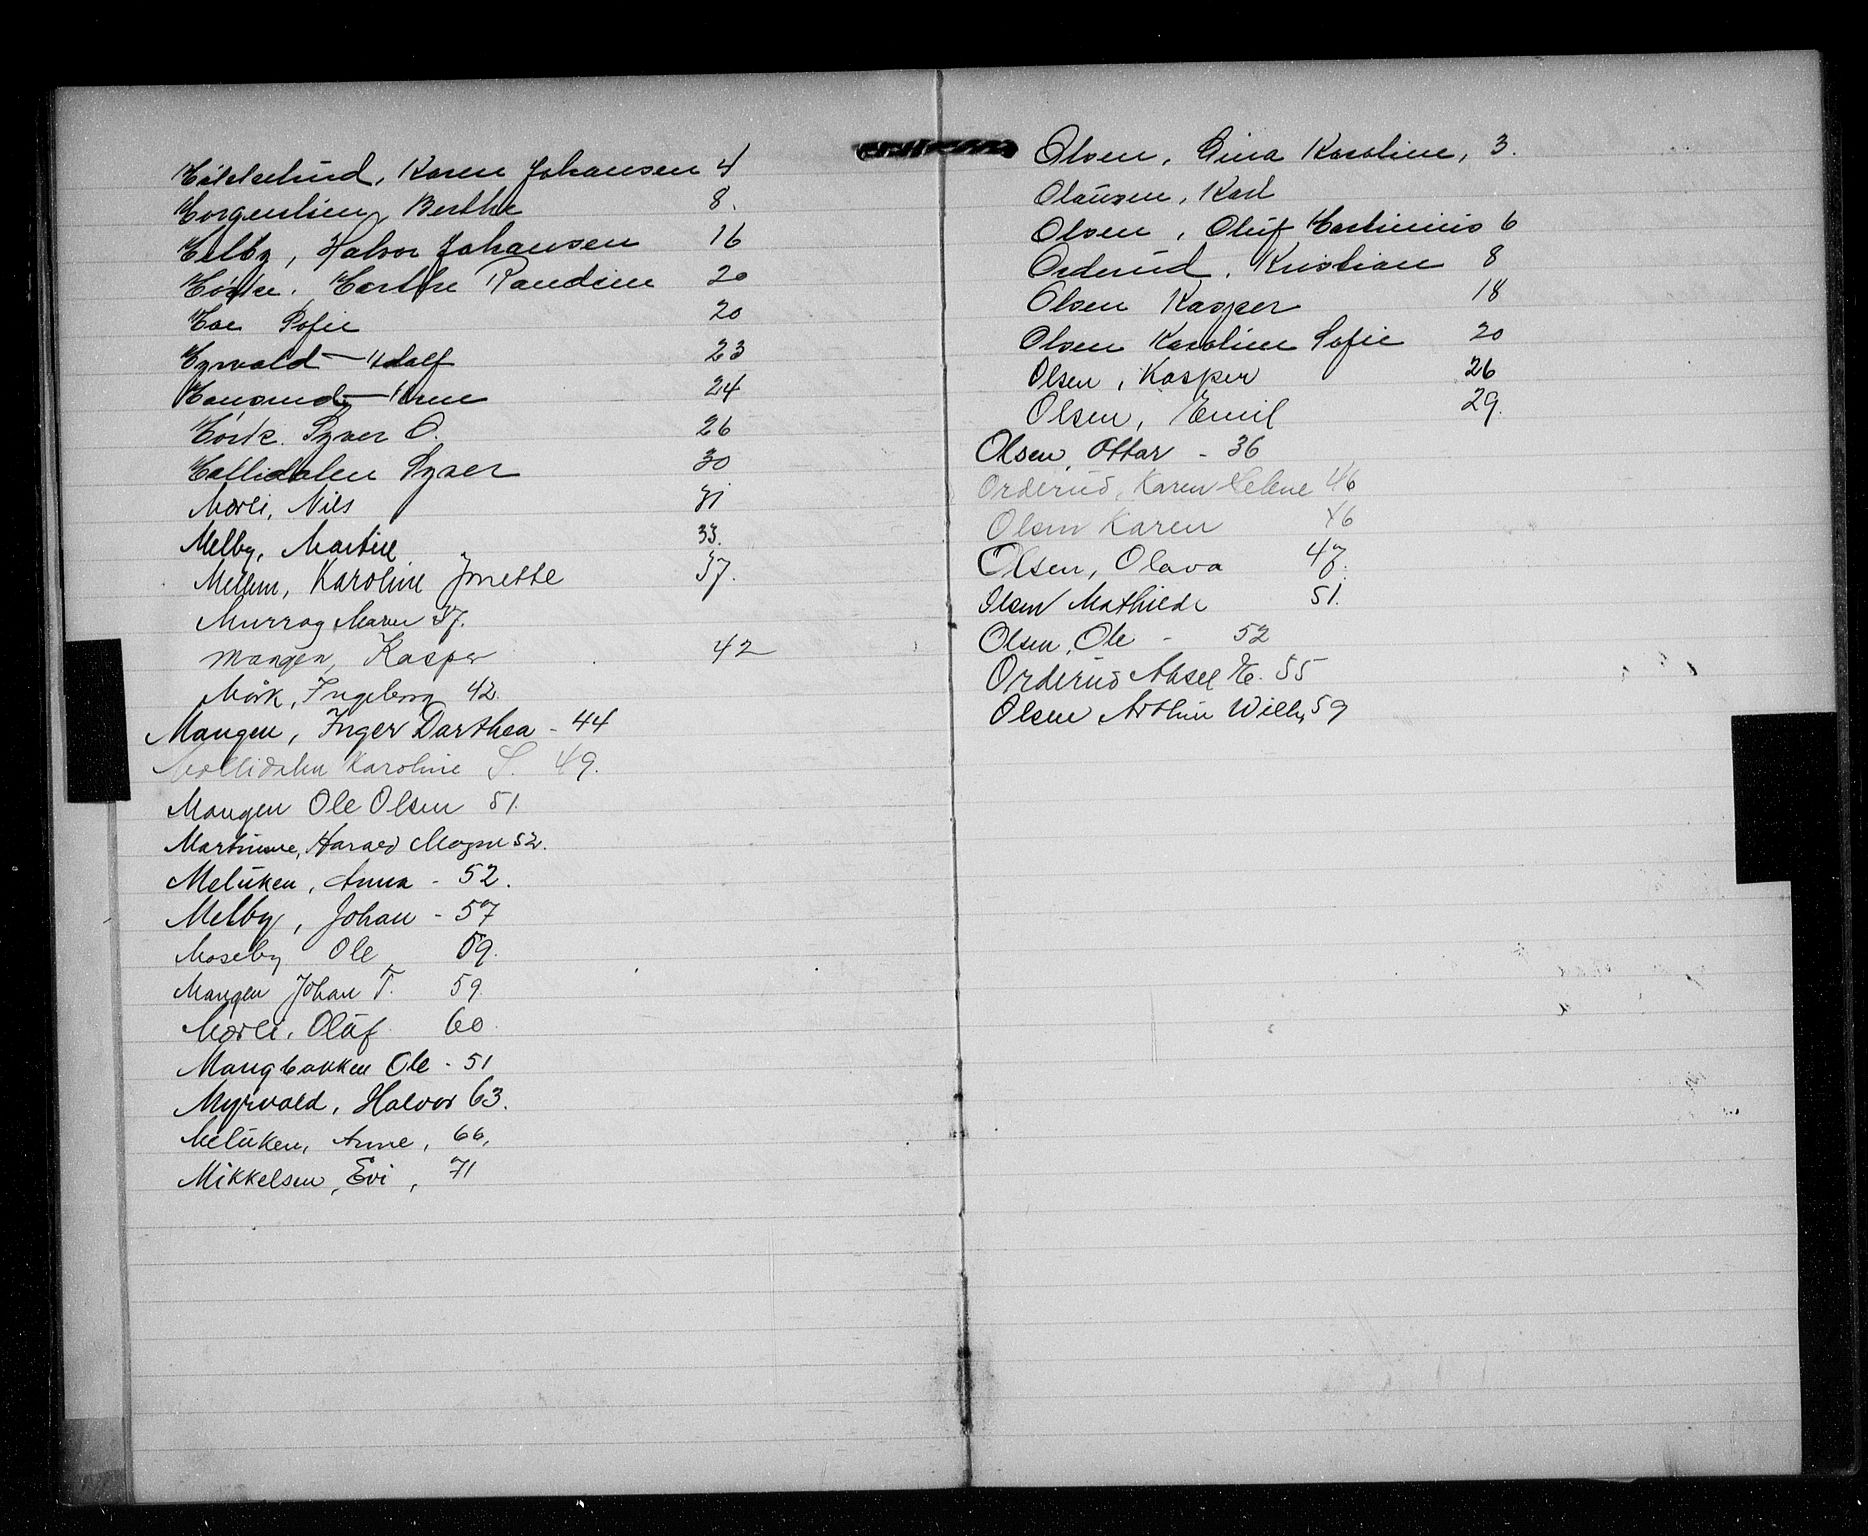 Karen Johansen 4
Morgenstien, Berthe 8.
Melby, Halvor Johansen 16
Mørk. Marthe Randine 20
Moe Sofie 20
Myrvold - Adolf 23
Arne 24
Mørk. Syver O. 26
Mollidalen Syver 30
Mørli, Nils 31
Melby, Martin 33.
Mellem, Karoline Jonette 37.
Murray Maren 37.
Mangen, Kasper 42
Mørk, Ingeborg 42
Mangen, Inger Dorthea - 44
Mollidalen Karoline S. 49.
Mangen Ole Olsen 51.
Harald Magne 52.
Melüken, Anna - 52.
Melby, Johan - 57
Moseby Ole 59.
Mangen Johan T. 59.
Mørli, Olüf 60.
Mangbakken Ole - 51
Myrvold, Halvor 63.
Melüken, Anne, 66,
Mikkelsen, Evi, 71
Olsen, Gina Karoline, 3.
Olaüsen, Karl
Olsen, Olüf Martinius 6
Orderüd, Kristian 8
Olsen Kasper 18
Olsen Karoline Sofie 20
Olsen, Kasper 26
Olsen, Emil 29.
Olsen, Ottar - 36
Orderüd, Karen Helene 46
Olsen Karen 46
Olsen, Olava 47.
Olsen Mathilde 51.
Olsen, Ole - 52
Orderüd Aksel E. 55
Olsen Arthür Willy 59